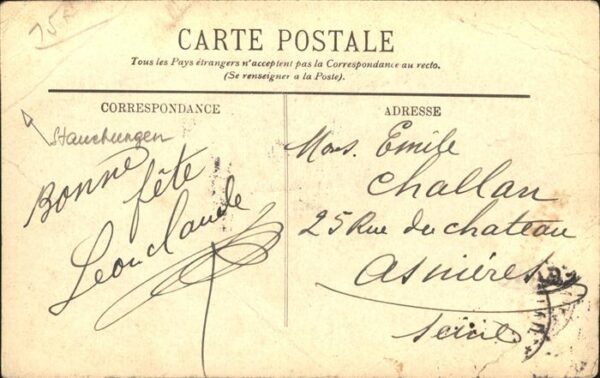 CARTE POSTALE
Tous les Pays étrangers n'acceptent pas la Correspondance au recto.
(Se renseigner a la Poste).
CORRESPONDANCE
Stauchungen
Bonne
fête
Leon Claude
ADRESSE
Mons. Emile
Challan
25 Rue du chateau
Asnières
Seine